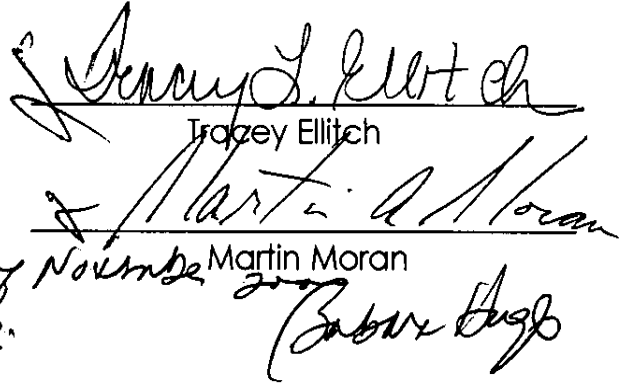 Tracey L. Ellitch
Tracey Ellitch
Martin A Moran
Martin Moran
of November 2000
Barbara